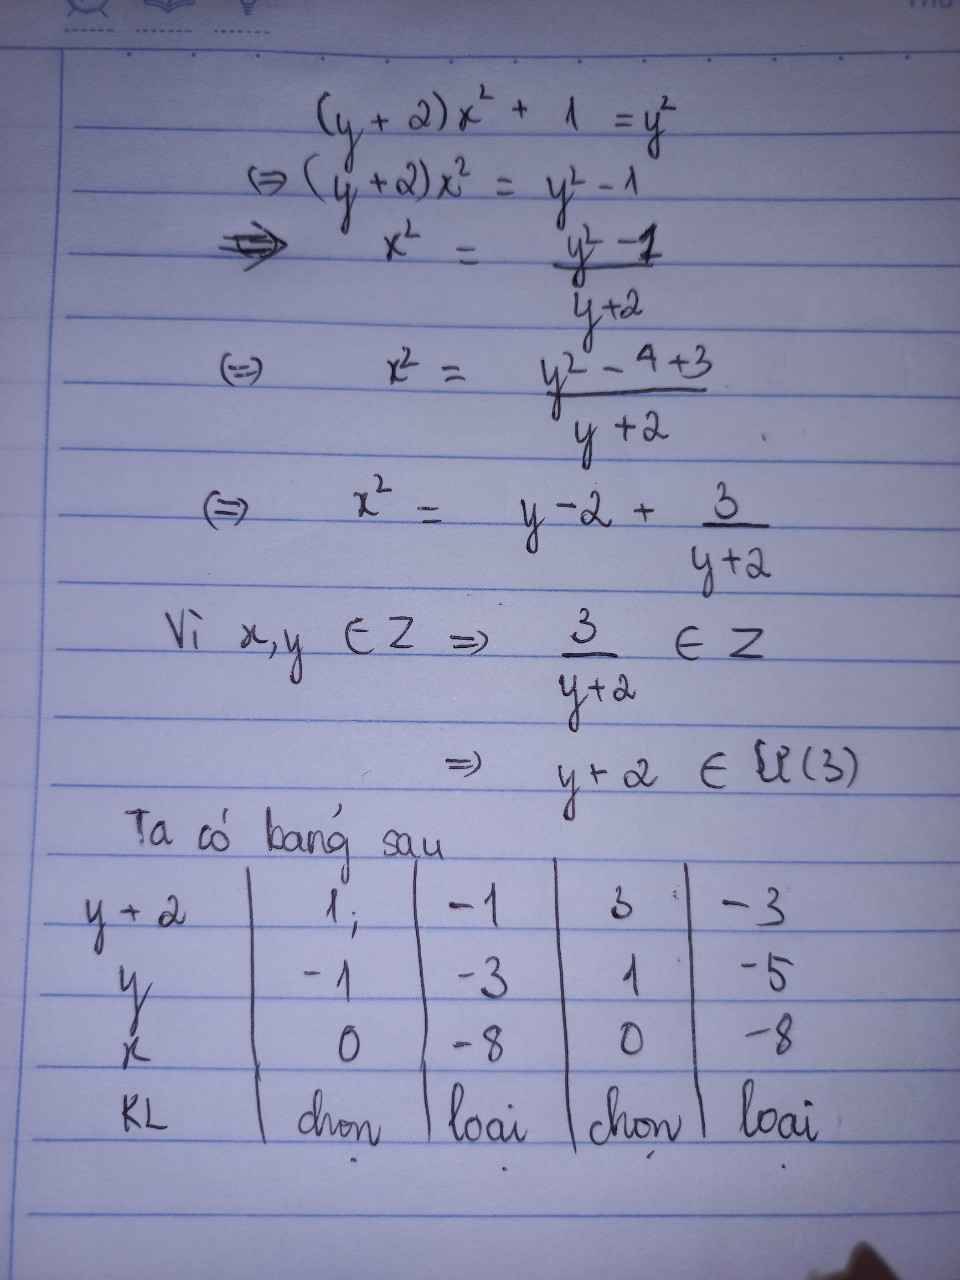 (y + 2)x² + 1 = y²
⇔ (y + 2)x² = y² - 1
⇒ x² = (y² - 1)/(y + 2)
⇔ x² = (y² - 4 + 3)/(y + 2)
⇔ x² = y - 2 + 3/(y + 2)
Vì x, y ∈ Z ⇒ 3/(y + 2) ∈ Z
⇒ y + 2 ∈ Ư(3)
Ta có bảng sau
y + 2 | 1; | -1 | 3 | -3
y | -1 | -3 | 1 | -5
x | 0 | -8 | 0 | -8
KL | chọn | loại | chọn | loại